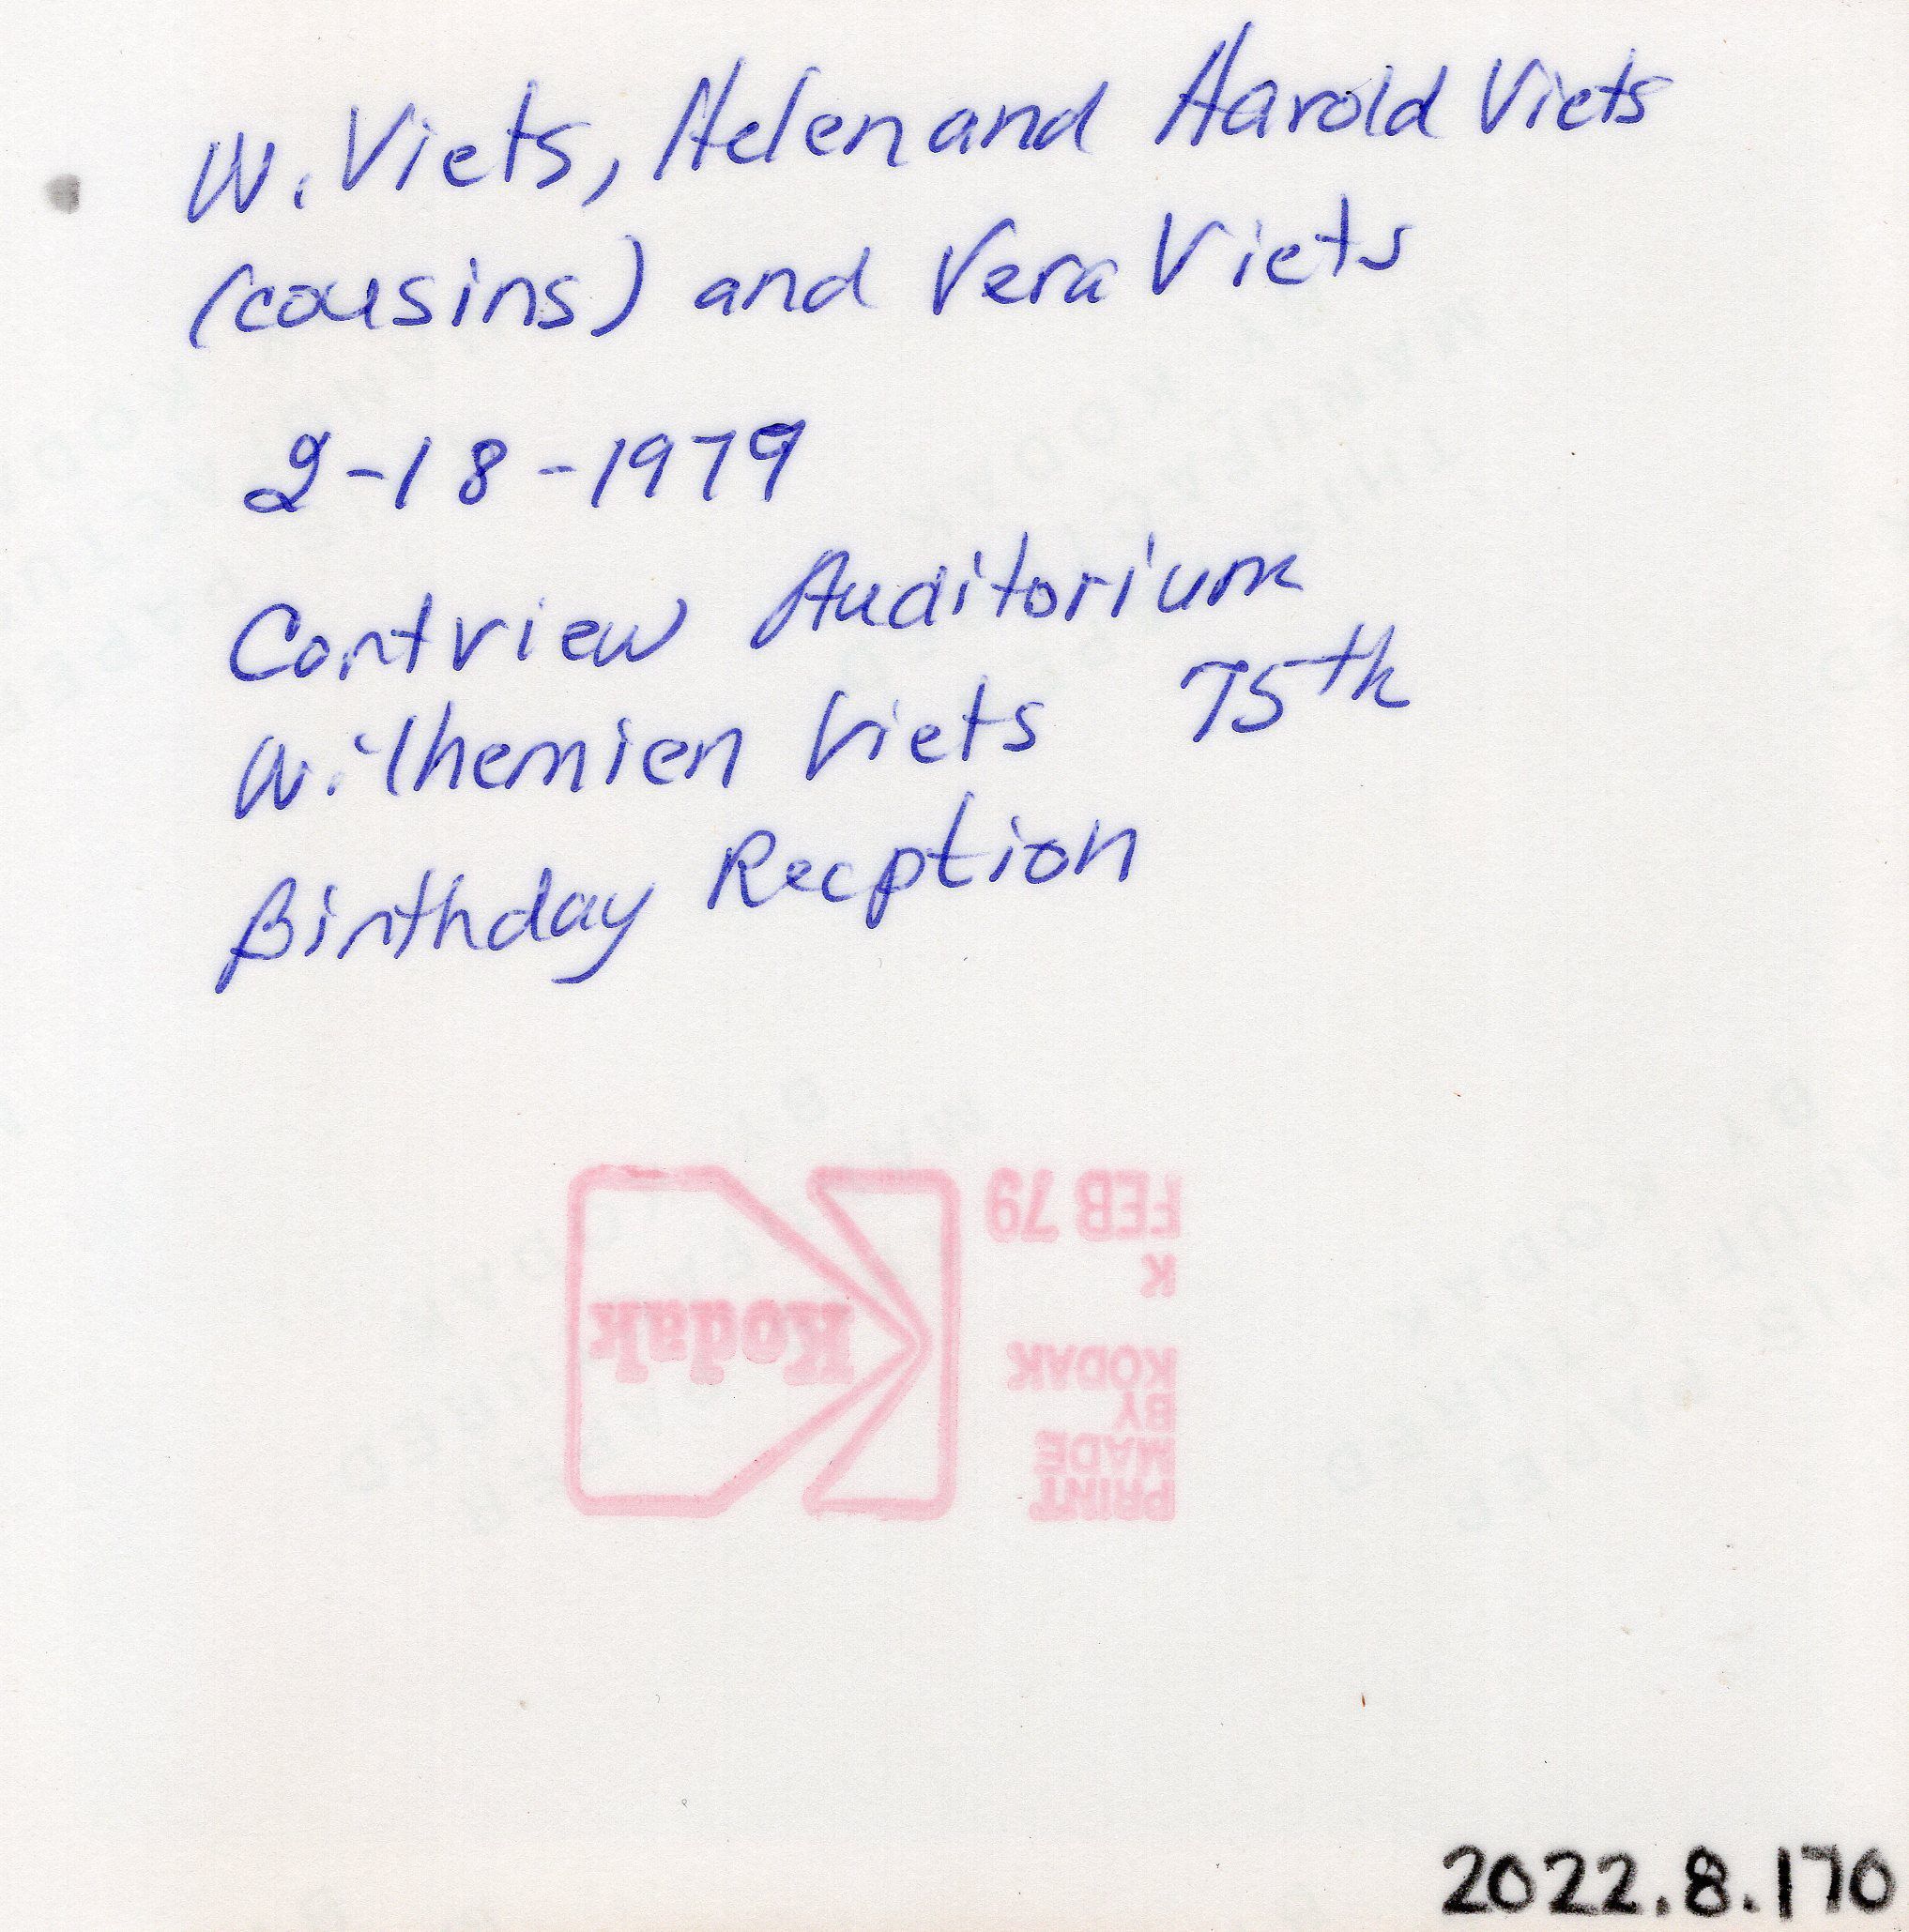 W. Viets, Helen and Harold Viets
(cousins) and Vera Viets
2-18-1979
Contview Auditorium
Wilhemien Viets 75th
Birthday Recption
FEB 79
K
Kodak
KODAK
BY
MADE
PRINT
2022.8.170